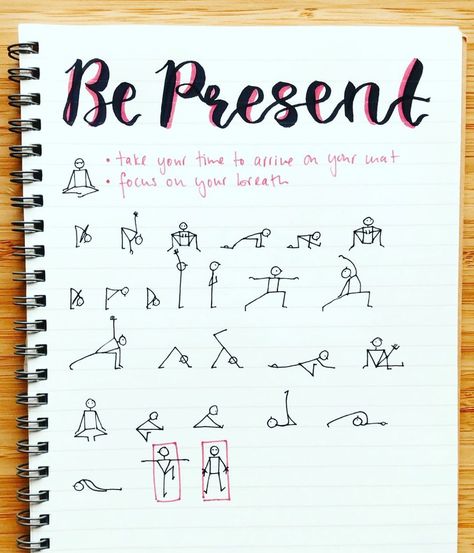 Be Present
• take your time to arrive on your mat
• focus on your breath